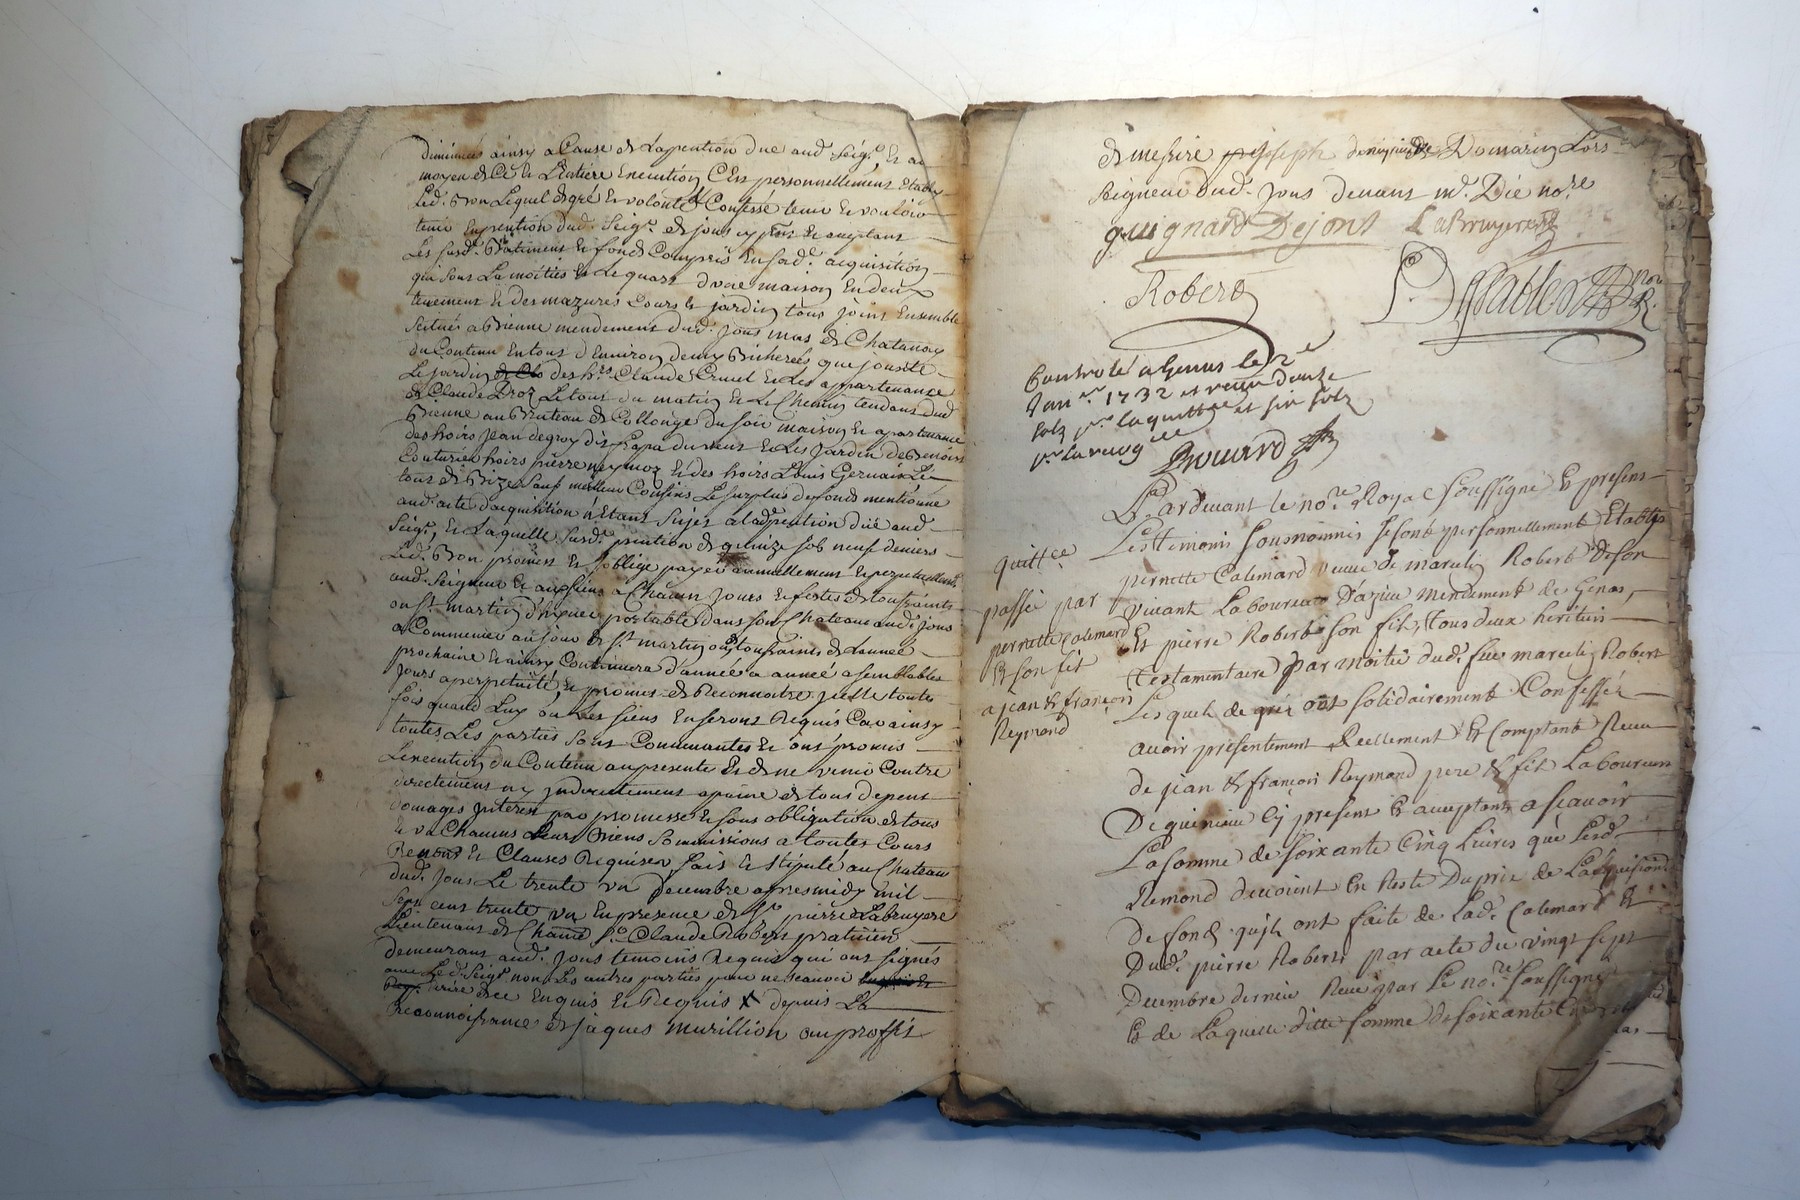 diminués ainsy a Cause de Lapention due aud. Seigr. Et au
moyen de Ce Et Lentiere Execution Cest personnellement Etably
Led. Bron Lequel de gré Et volonté Confesse tenir Et vouloir
tenir En pention dud. Seigr. de jons cy pnt Et acceptant
Les susd. Batiment Et fonds Compris En sad. acquisition
qui sont La moitiés Et Le quart d'une maison En deux
tenement Et des mazures Cours Et jardin tous joints Ensemble
scitués a Bienne mendement dud. jons mas de Chatanay
du Contenu En tout d'Environ deux Bicherées que jouxte
Le jardin des hrs. Claude Cruel Et Les appartenance
de Claude Droz Le tout du matin Et Le Chemin tendant dud
Bienne au Bruteau de Collonge du soir maison Et apartenance
des hoirs jean degroy dit papa du vent Et Les jardin de Benoist
Couturier hoirs pierre neymoz Et des hoirs Louis Germain Le
tout de Bize sauf meilleur Confins Le surplus de fonds mentionné
aud. acte d'acquisition n'Etant sujet a lad. pention düe aud.
Seigr. Et Laquelle susd. pention de quinze sols neuf deniers
Led. Bron promet Et soblige payer annuellement Et perpetuellement
aud. Seigneur Et aux siens a Chacun jours Et festes de toussaints
ou St. martin d'hyver portable dans son Chateau aud. jons
a Commencer au jour de St. martin ou toussaints de L'année
prochaine Et ainsy Continuera d'année a année a semblables
jours a perpetuité Et promet de Reconnoitre jcelle toute
fois quand Luy ou Les siens En seront Requis Car ainsy
toutes Les parties sont Convenantes Et ont promis
L'execution du Contenu au presente Et de ne venir Contre
directement ny jndirectement a paine de tous depens
domages jnterest par promesse Et sous obligation de tous
Et un Chacuns Leurs Biens soumissions a toutes Cours
Renont Et Clauses Requises fait Et stipulé au Chateau
dud. jons Le trente un Decembre apres midy mil
sept cent trente un En presence de Sr. pierre Labruyere
Lieutenant de Sr. Claude Robert praticien
demeurant aud. jons temoins Requis qui ont signés
avec Led. Seigr. non Les autres parties pour ne scavoir
Ecrire de ce Enquis Et Requis X depuis La
Reconnoissance de jaques murillion au proffit
de messire joseph de Domarin Lors
seigneur dud. jons devant me. Die nore
guignard Dejons LaBruyere
Robert
Dessables nore R.
Controlé a Genas le 2e
janer. 1732 et reçu douze
sols pr. la quittce et six sols
pr. la recog
Brouard
Par devant le nore. Royal soussigné Et present
Les temoins sousnommés se sont personnellement Etablis
pernette Calemard veuve de marcelin Robert de son
vivant Laboureur D'azieu mendement de Genas,
Et pierre Robert son fils, tous deux heritiers
testamentaire par moitié dud. feu marcelin Robert
Lesquels de gré ont solidairement Confessés
avoir presentement Reellement Et Comptant Receu
de jean Et françois Reymond pere Et fils Laboureurs
De quincieu Cy present Et acceptants a sçavoir
La somme de soixante Cinq Livres que Lesd.
Remond devoient En Reste Du prix de Lacquisition
de fonds quils ont faite de Lad. Calemard Et
Dud. pierre Robert par acte du vingt sept
Decembre dernier Receu par Le nore. soussigné
Et de Laquelle ditte somme de soixante Cinq
quittce
passée par
pernette calemard
Et son fils
a jean Et françois
Reymond